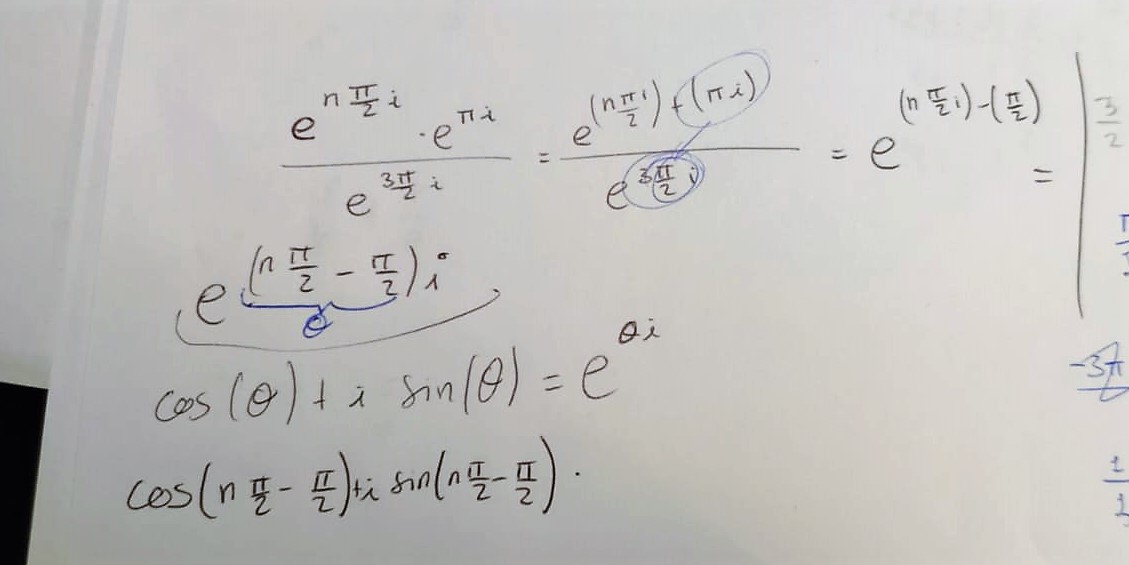 e^{n \frac{π}{2} i} · e^{π i} / e^{3 \frac{π}{2} i} = e^{(n \frac{π i}{2}) + (π i)} / e^{3 \frac{π}{2} i} = e^{(n \frac{π}{2} i) - (\frac{π}{2})} =
3/2
e^{(n \frac{π}{2} - \frac{π}{2}) i}
θ
cos(θ) + i sin(θ) = e^{θ i}
-3π
cos(n \frac{π}{2} - \frac{π}{2}) + i sin(n \frac{π}{2} - \frac{π}{2}).